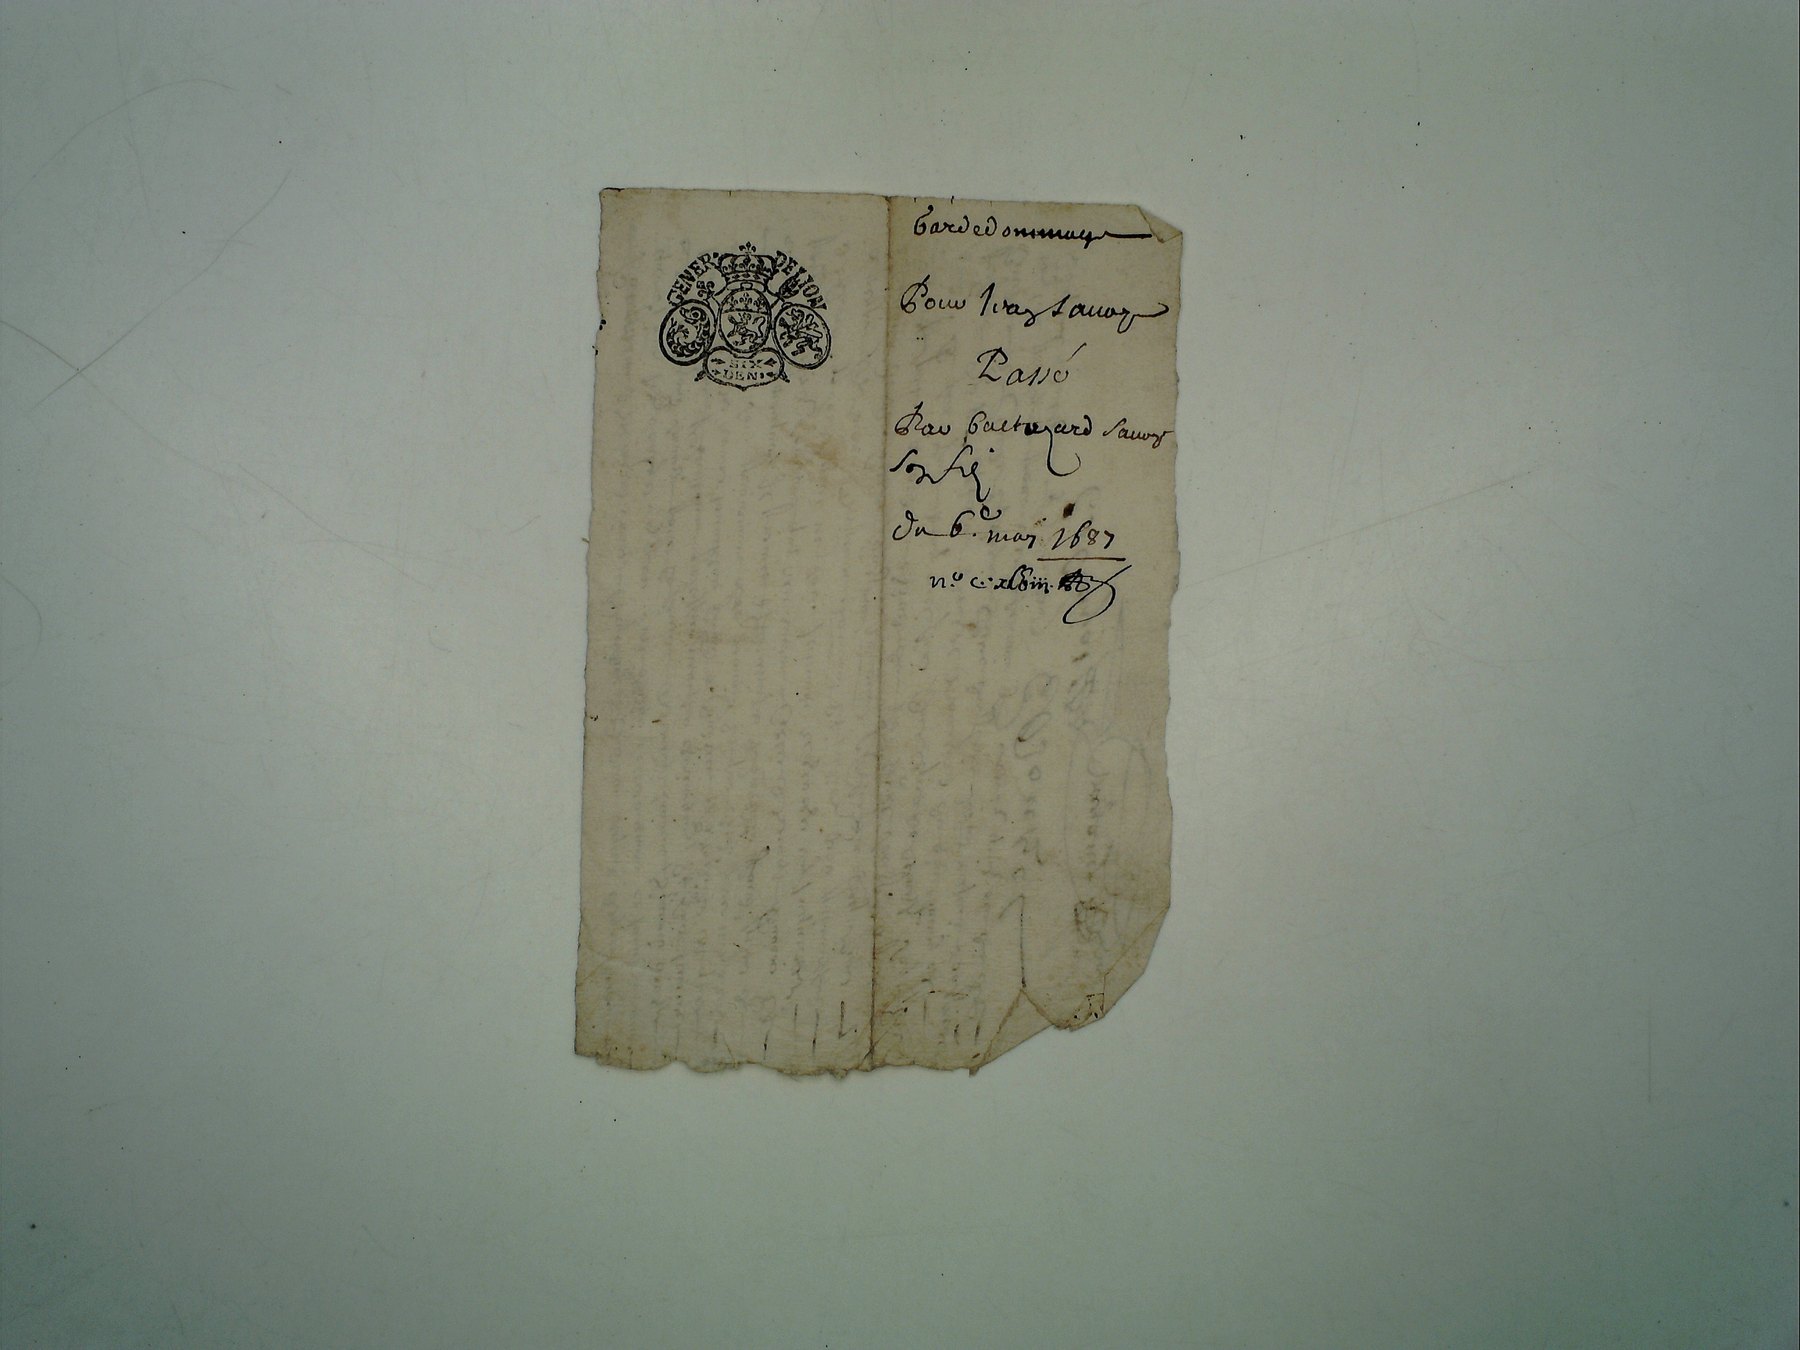 GENER. DE LION
SIX
DEN.
Gardedommage
Pour Savoye
Passé
Par Balthezard Savoye
son filz
du 6.e may 1687
n.o c. xlviii.